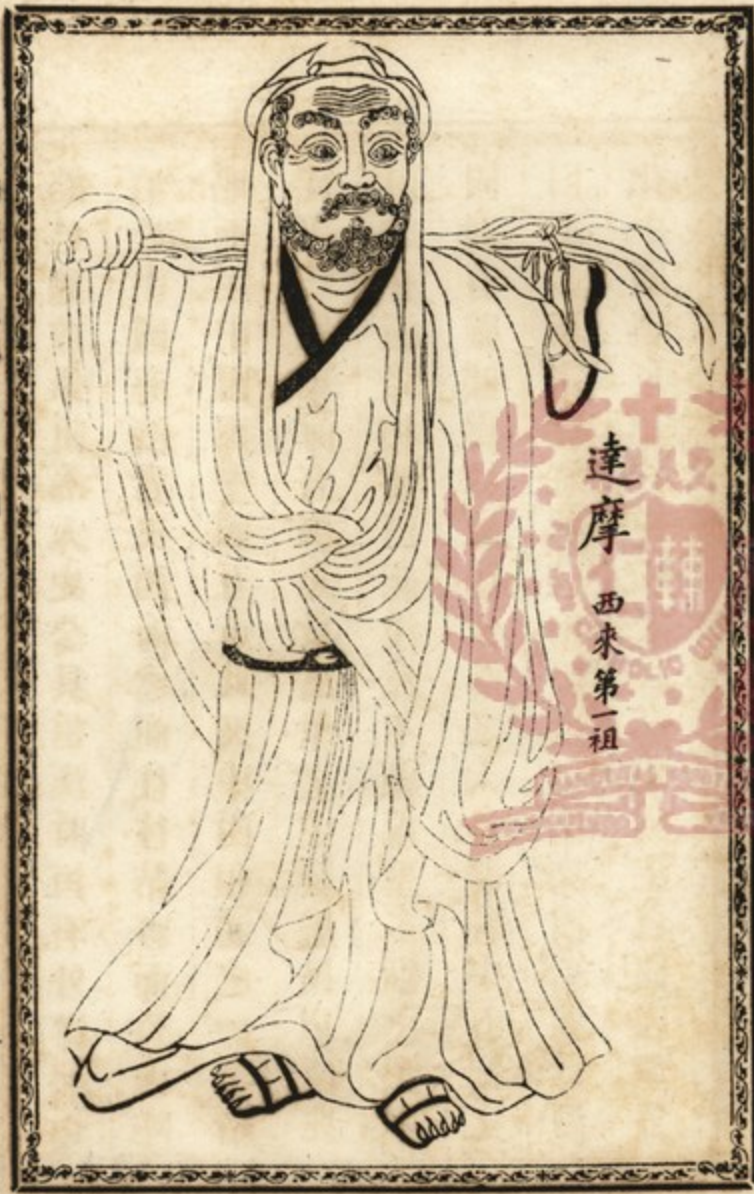 達摩
西來第一祖